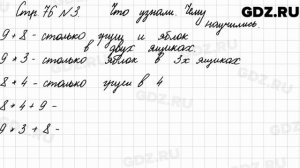 GDZ.RU
Стр. 76 № 3. Что узнали. Чему
научились
9 + 8 - столько груш и яблок
в двух ящиках
9 * 3 - столько яблок в 3х ящиках
8 * 4 - столько груш в 4
8 * 4 + 9 -
9 * 3 + 8 -